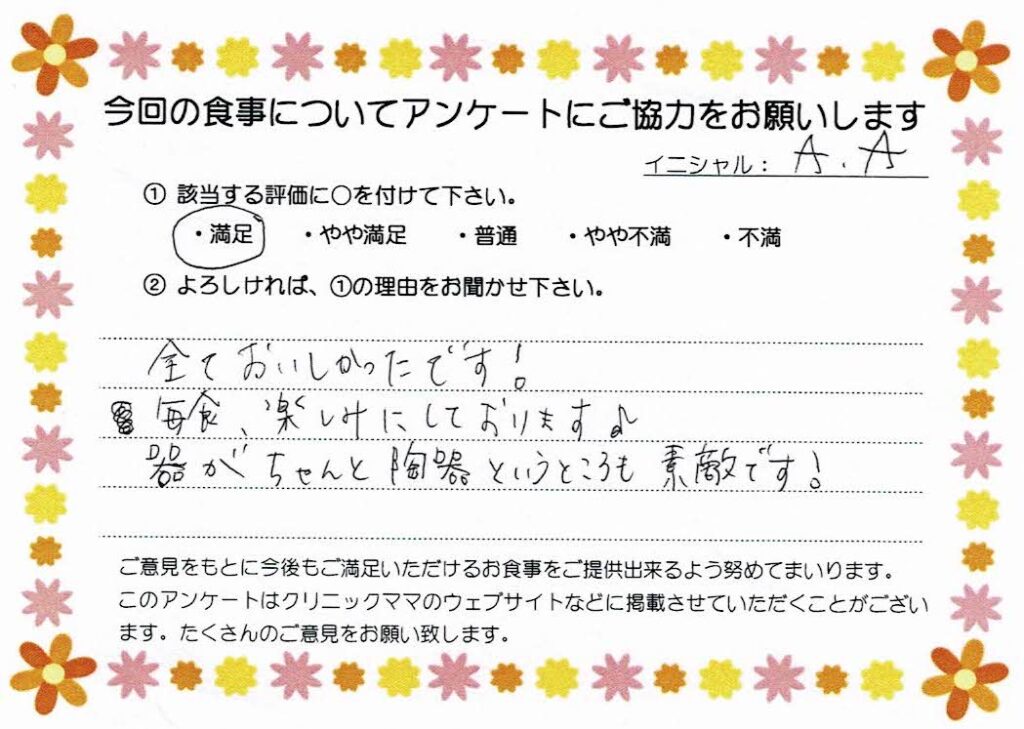 今回の食事についてアンケートにご協力をお願いします
イニシャル： A.A
① 該当する評価に○を付けて下さい。
・満足 ・やや満足 ・普通 ・やや不満 ・不満
② よろしければ、①の理由をお聞かせ下さい。
全ておいしかったです！
毎食、楽しみにしております♪
器がちゃんと陶器というところも素敵です！
ご意見をもとに今後もご満足いただけるお食事をご提供出来るよう努めてまいります。
このアンケートはクリニックママのウェブサイトなどに掲載させていただくことがござい
ます。たくさんのご意見をお願い致します。